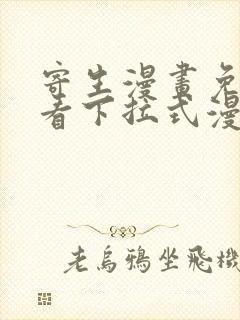 寄生漫畫免
看下拉式漫
老烏鴉坐飛機